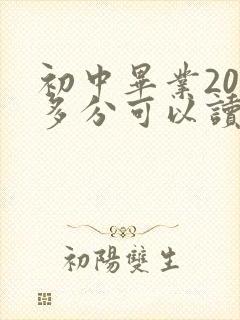 初中畢業20
多分可以讀
初陽雙生